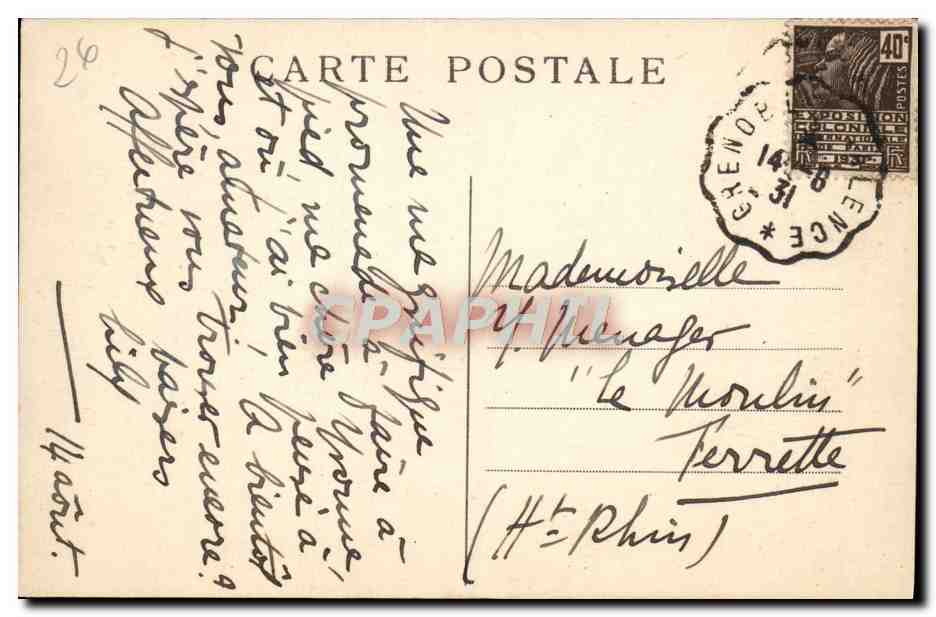 24
CARTE POSTALE
Une magnifique
promenade à faire à
pied, ma chère Yvonne,
et où j'ai bien pensé à
vous, amateur! A bientôt
j'espère vous trouver encore?
Affectueux baisers
Lily
14 août.
40c
POSTES
EXPOSITION
COLONIALE
INTERNATIONALE
PARIS
1931
RF RF
GRENOB LENCE *
14-8
31
Mademoiselle
Y. Menager
"Le Moulin"
Ferrette
(Ht-Rhin)
CPAPHIL